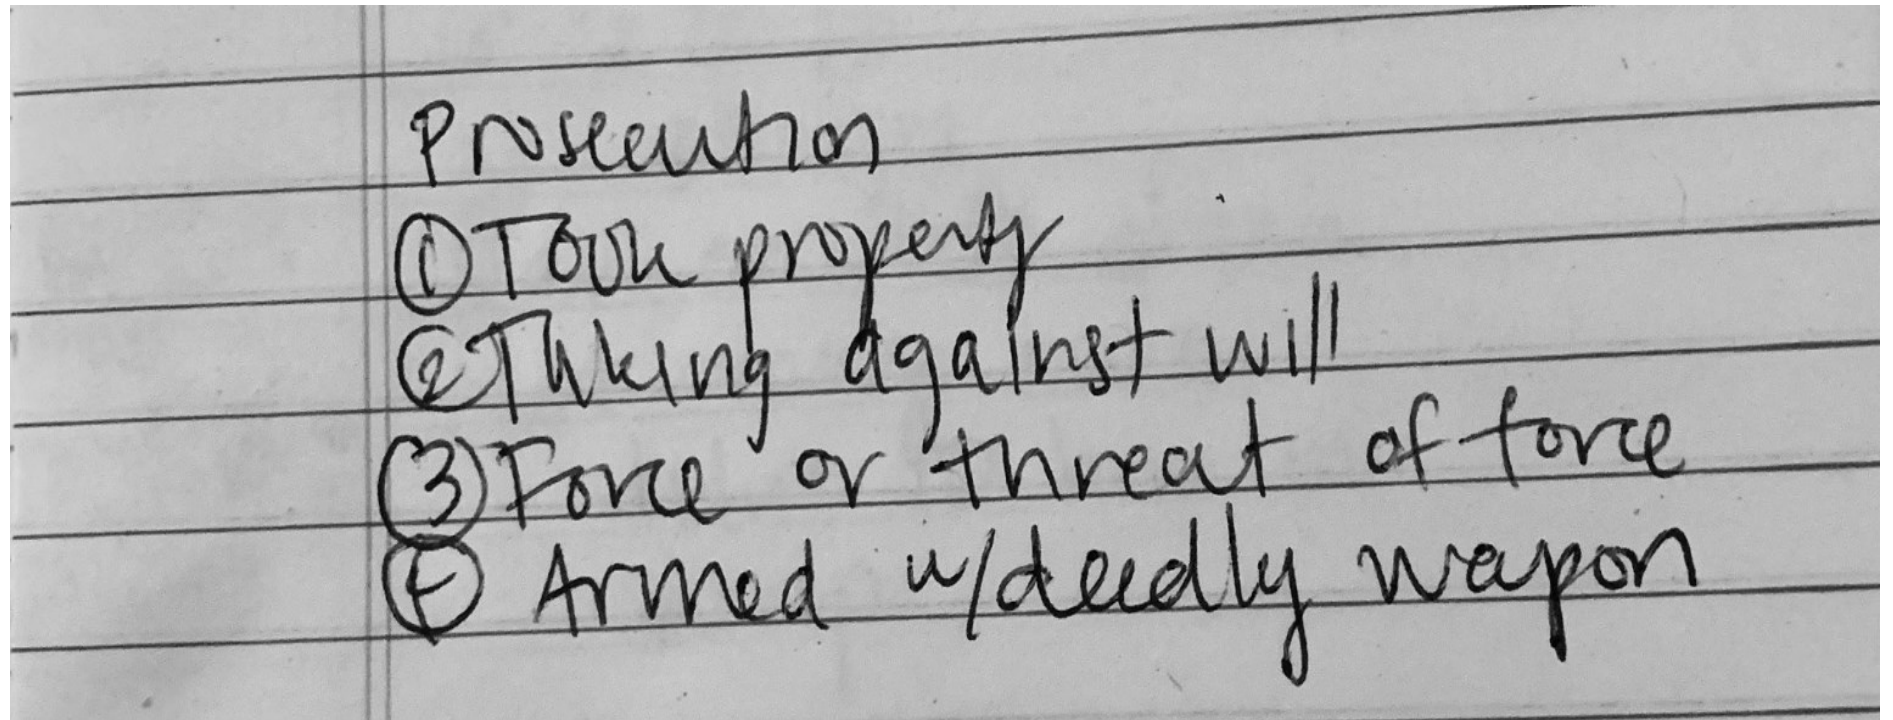 Prosecution
① Took property
② Taking against will
③ Force or threat of force
④ Armed w/deadly weapon